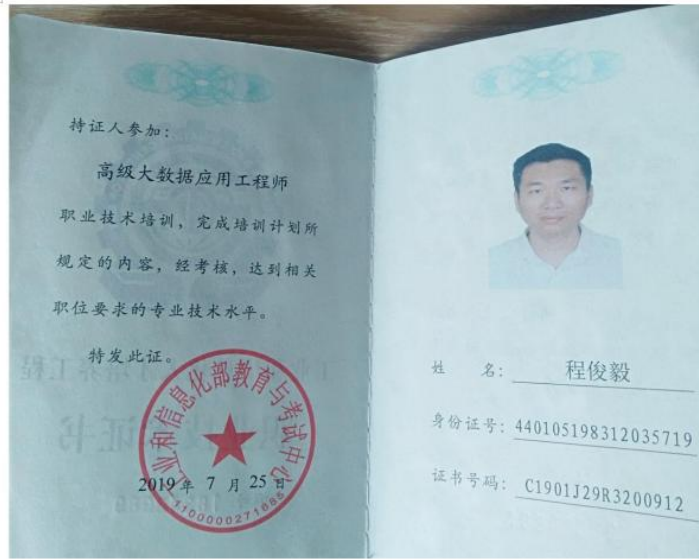 持证人参加：
高级大数据应用工程师
职业技术培训，完成培训计划所
规定的内容，经考核，达到相关
职位要求的专业技术水平。
特发此证。
工业和信息化部教育与考试中心
2019年 7 月 25日
1100000271685
姓 名：程俊毅
身份证号：440105198312035719
证书号码：C1901J29R3200912